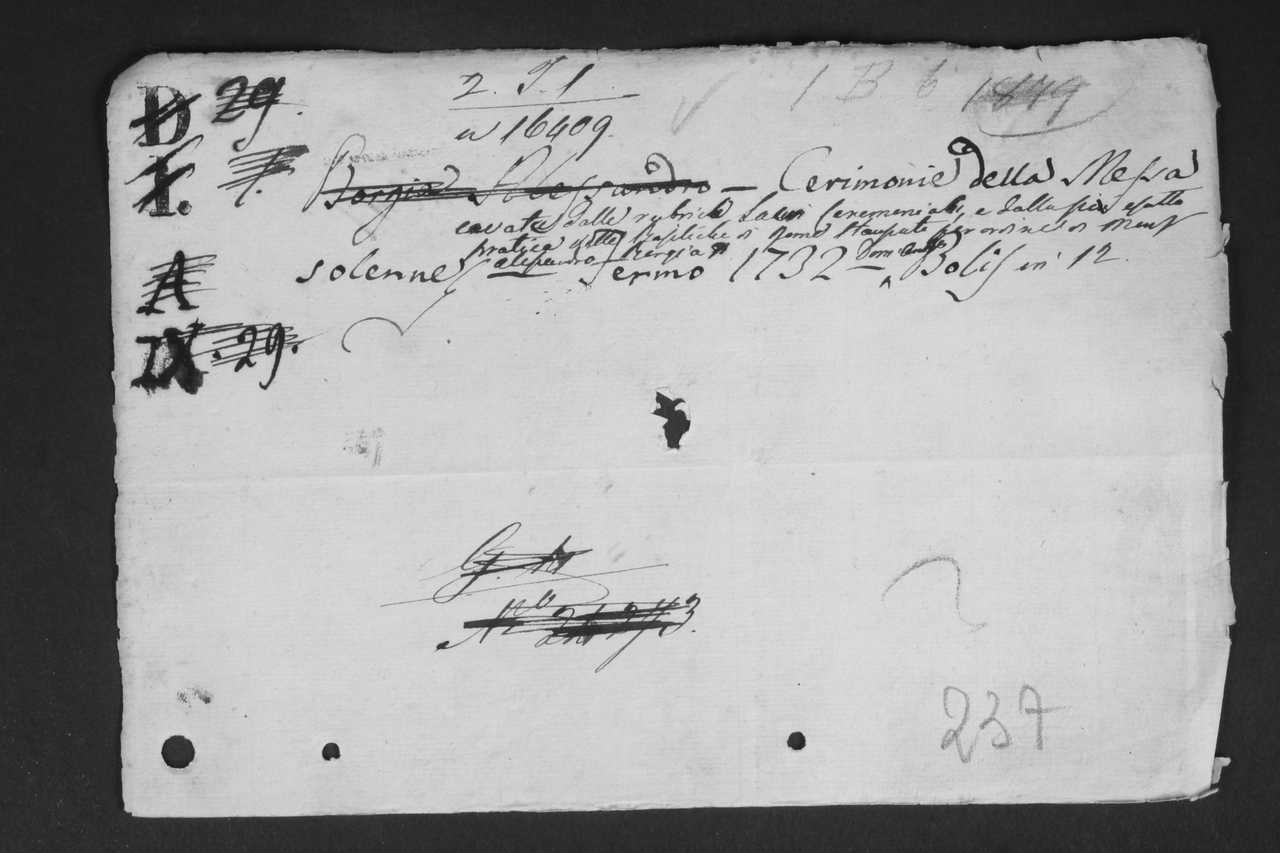 D 29.
2. J. 1
n 16409.
1 B b 1849
I. 1.
Borgia Alessandro — Cerimonie della Messa
cavate dalle rubriche, e dalla più esatta
pratica delle Basiliche di Roma stampate per ordine di Mons.r
Alessandro Borgia
solenne Fermo 1732 — Bolis in 12.
A
IX. 29.
N.o
237